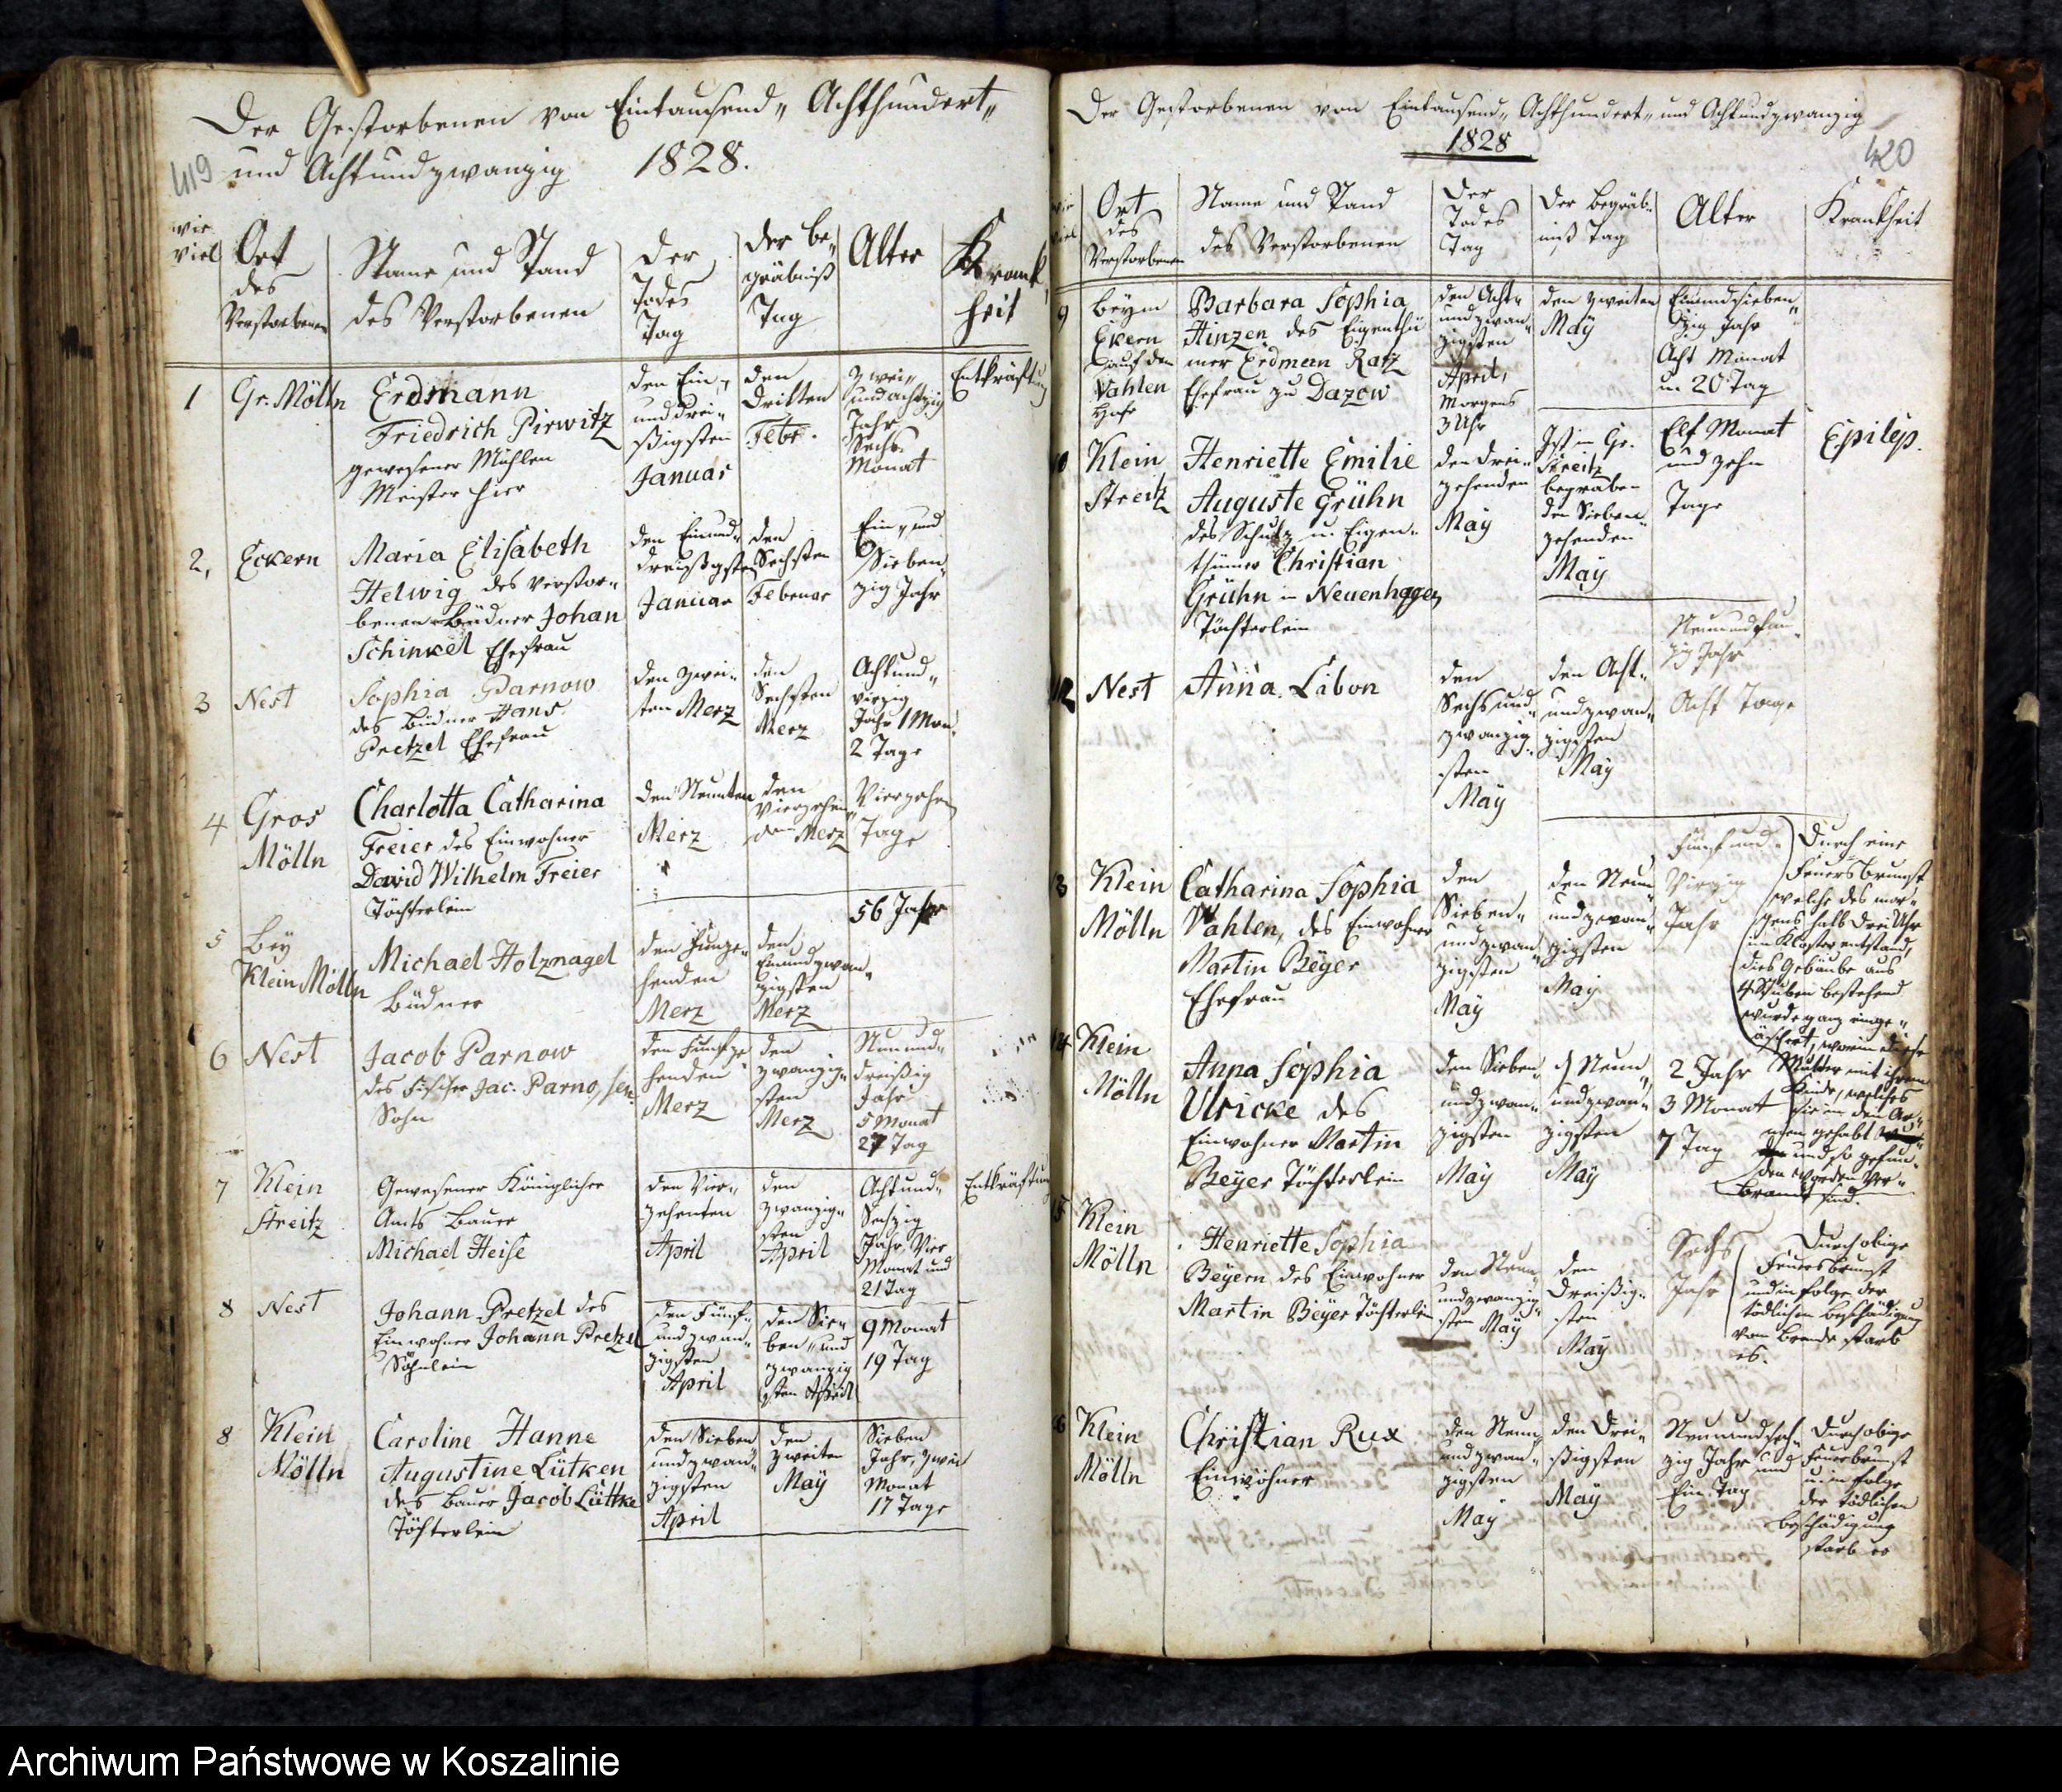 Der Gestorbenen von Eintausend„ Achthundert„
und Achtundzwanzig 1828.
419
wie viel
Ort des Verstorbenen
Name und Stand des Verstorbenen
Der Todes Tag
Der Be„ gräbniß Tag
Alter
Krank„ heit
1
Gr. Mölln
Erdmann
Friedrich Pirwitz
gewesener Mühlen
Meister hier
den Ein„
und drei„
ßigsten
Januar
den
Dritten
Febr.
Zwei„
und achtzig
Jahr
Sechs
Monat
Entkräftung
2,
Eckern
Maria Elisabeth
Helwig des verstor„
benen Büdner Johan
Schinkel Ehefrau
den Einund„
dreißigsten
Januar
den
Sechsten
Februar
Ein„ und
Sieben„
zig Jahr
3
Nest
Sophia Parnow
des Büdner Hans
Pretzel Ehefrau
den Zwei„
ten Merz
den
Sechsten
Merz
Achtund„
virzig
Jahr 1 Mon.
2 Tage
4
Gros
Mölln
Charlotta Catharina
Freier des Einwohner
David Wilhelm Freier
Töchterlein
den Neunten
Merz
den
Vierzehen„
den Merz
Vierzehn
Tage
5
Bey
Klein Mölln
Michael Holznagel
Büdner
henden
Merz
den
Einundzwan„
zigsten
Merz
56 Jahr
6
Nest
Jacob Parnow
des Fischer Jac. Parno, sen.
Sohn
den Funfze
henden
Merz
den
zwanzig„
sten
Merz
Neunund„
dreißig
Jahr
5 Monat
27 Tag
7
Klein
Streitz
Gewesener Königlicher
Amts Bauer
Michael Heise
den Vier„
zehenten
April
den
zwanzig„
sten
April
Achtund„
Sechzig
Jahr, Vier
Monat und
21 Tag
Entkräftung
8
Nest
Johann Pretzel des
Einwohner Johann Pretzel
Söhnlein
den Fünf„
undzwan„
zigsten
April
den Sie„
ben„ und
zwanzig
sten April
9 Monat
19 Tag
8
Klein
Mölln
Caroline Hanne
Augustine Lütken
des Bauer Jacob Lüttke
Töchterlein
den Sieben
undzwan„
zigsten
April
den
zweiten
May
Sieben
Jahr, zwei
Monat
17 Tage
Der Gestorbenen von Eintausend„ Achthundert„ und Achtundzwanzig
1828
420
wie viel
Ort des Verstorbenen
Name und Stand des Verstorbenen
Der Todes Tag
Der Begräb„ niß Tag
Alter
Krankheit
9
Beym
Ekern
auf dem
Vahlen
Hofe
Barbara Sophia
Hinzen des Eigenthü
mer Erdman Ratz
Ehefrau zu Dazow
den Acht„
undzwan„
zigsten
April,
Morgens
3 Uhr
den zweiten
May
Einundsieben„
zig Jahr
Acht Monat
u. 20 Tag
10
Klein
Streitz
Henriette Emilie
Auguste Grühn
des Schulz u. Eigen„
thümer Christian
Grühn in Neuenhagen
Töchterlein
den drei„
zehenden
May
Ist in Gr.
Streitz
begraben
den Sieben„
zehenden
May
Elf Monat
und zehn
Tage
Epilep.
12
Nest
Anna Libon
den
Sechs und
zwanzig„
sten
May
den Acht„
undzwan„
zigsten
May
Jahr
Acht Tage
13
Klein
Mölln
Catharina Sophia
Vahlen, des Einwohner
Martin Beÿer
Ehefrau
den
Sieben„
undzwan„
zigsten
May
den Neun„
undzwan„
zigsten
May
Fünfund„
Virzig
Jahr
Durch eine
Feuersbrunst
welche des mor„
gens halb drei Uhr
im Kloster entstand,
dies Gebäude aus
4 Stuben bestehend
wurde ganz einge„
äschert, worin diese
Mutter mit ihrem
Kinde, welches
sie in den Ar„
men gehabt
und so gefun„
den worden ver„
brannt sind.
14
Klein
Mölln
Anna Sophia
Ulricke des
Einwohner Martin
Beyer Töchterlein
den Sieben„
undzwan„
zigsten
May
d. Neun„
undzwan„
zigsten
May
2 Jahr
3 Monat
7 Tag
15
Klein
Mölln
Henriette Sophia
Beÿern des Einwohner
Martin Beÿer Töchterlein
den Neun„
undzwanzig„
sten May
den
Dreißig„
sten
May
Sechs
Jahr
Durch obige
Feuersbrunst
und in Folge der
tödlichen Beschädigung
vom Brande starb
es.
16
Klein
Mölln
Christian Rux
Einwohner
den Neun„
undzwan„
zigsten
May
den Drei„
ßigsten
May
zig Jahr und
Ein Tag
Durch obige
Feuersbrunst
u. in Folge
der tödlichen
Beschädigung
starb er
Archiwum Państwowe w Koszalinie